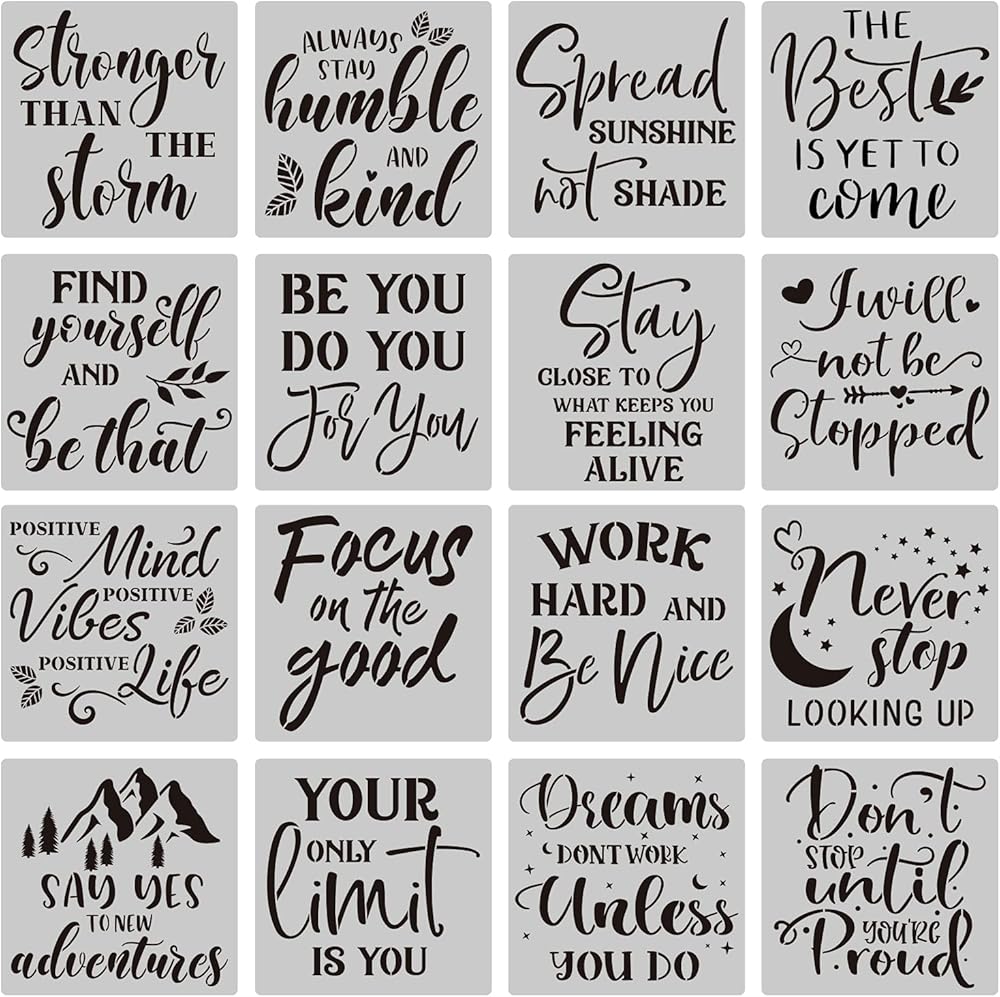 Stronger
THAN
THE
storm
ALWAYS
STAY
humble
AND
kind
Spread
SUNSHINE
not SHADE
THE
Best
IS YET TO
come
FIND
yourself
AND
be that
BE YOU
DO YOU
For You
Stay
CLOSE TO
WHAT KEEPS YOU
FEELING
ALIVE
I will
not be
Stopped
POSITIVE
Mind
POSITIVE
Vibes
POSITIVE
Life
Focus
on the
good
WORK
HARD AND
Be Nice
Never
stop
LOOKING UP
SAY YES
TO NEW
adventures
YOUR
ONLY
limit
IS YOU
Dreams
DONT WORK
Unless
YOU DO
Don't
STOP
until
YOU'RE
Proud